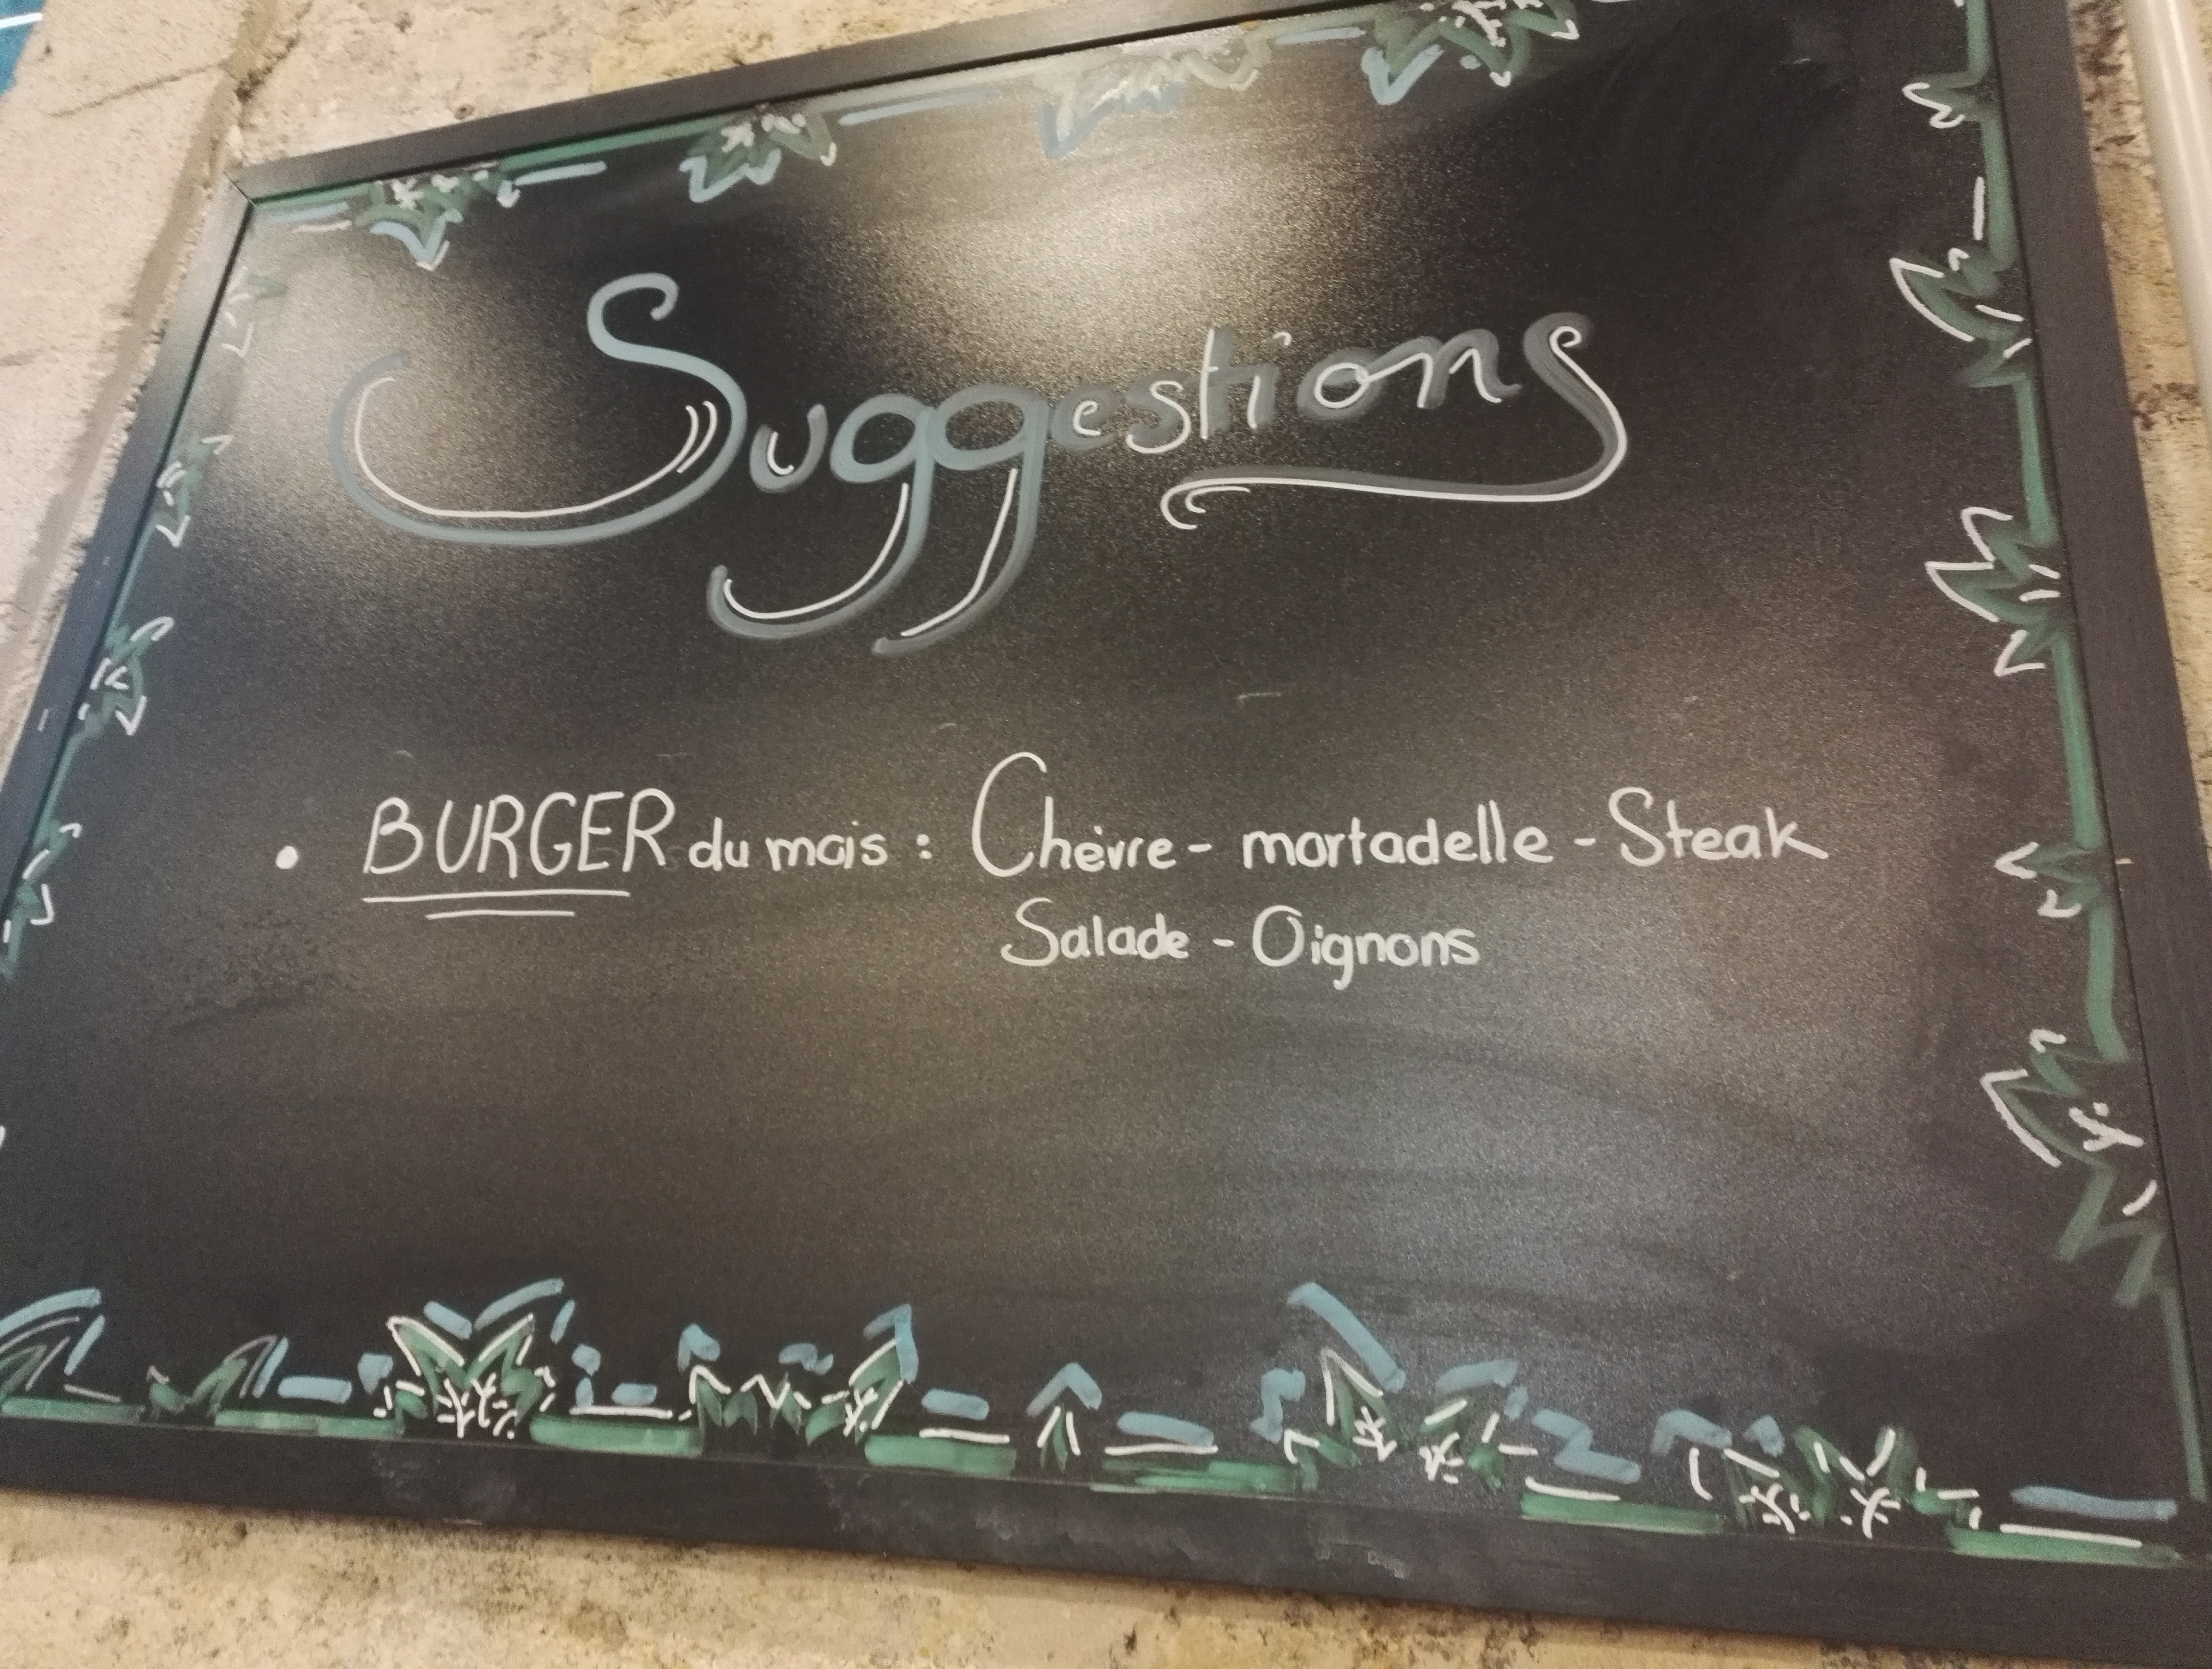 Suggestions
• BURGER du mois : Chèvre - mortadelle - Steak
Salade - Oignons